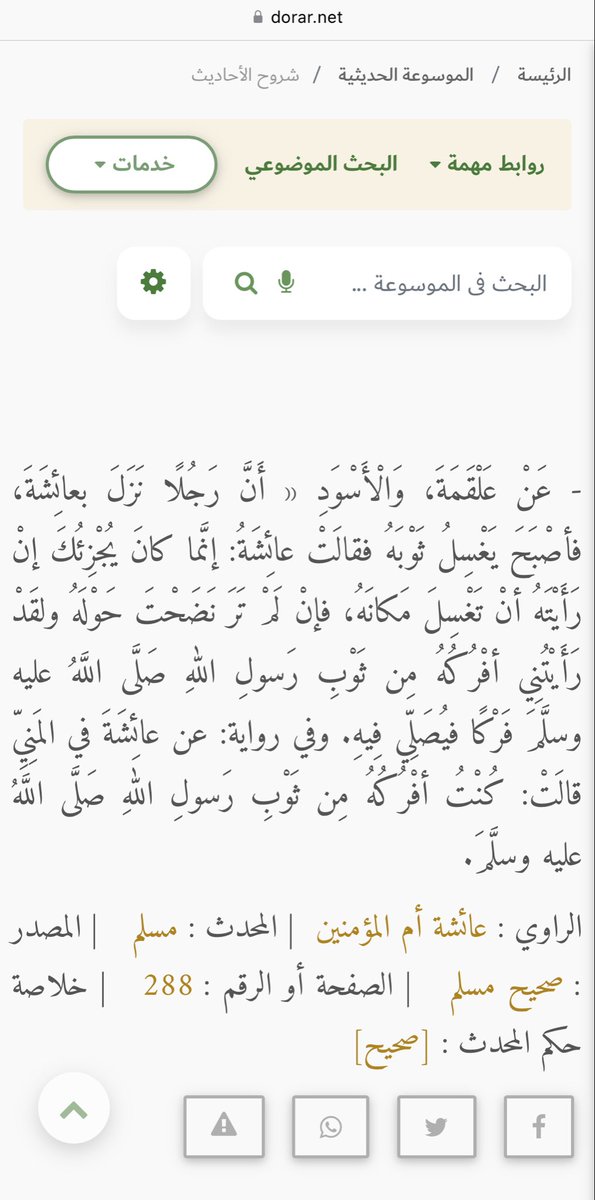 dorar.net
الرئيسة / الموسوعة الحديثية / شروح الأحاديث
روابط مهمة البحث الموضوعي خدمات
البحث في الموسوعة ...
- عَنْ عَلْقَمَةَ، وَالْأَسْوَدِ « أنَّ رَجُلًا نَزَلَ بعائِشَةَ،
فأصْبَحَ يَغْسِلُ ثَوْبَهُ فقالَتْ عائِشَةُ: إنَّما كانَ يُجْزِئُكَ إنْ
رَأَيْتَهُ أنْ تَغْسِلَ مَكانَهُ، فإنْ لَمْ تَرَ نَضَحْتَ حَوْلَهُ ولقَدْ
رَأَيْتُنِي أفْرُكُهُ مِن ثَوْبِ رَسولِ اللهِ صَلَّى اللَّهُ عليه
وسلَّمَ فَرْكًا فيُصَلِّي فِيهِ. وفي رواية: عن عائِشَةَ في المَنِيِّ
قالَتْ: كُنْتُ أفْرُكُهُ مِن ثَوْبِ رَسولِ اللهِ صَلَّى اللَّهُ
عليه وسلَّمَ.
الراوي : عائشة أم المؤمنين | المحدث : مسلم | المصدر
: صحيح مسلم | الصفحة أو الرقم : 288 | خلاصة
حكم المحدث : [صحيح]